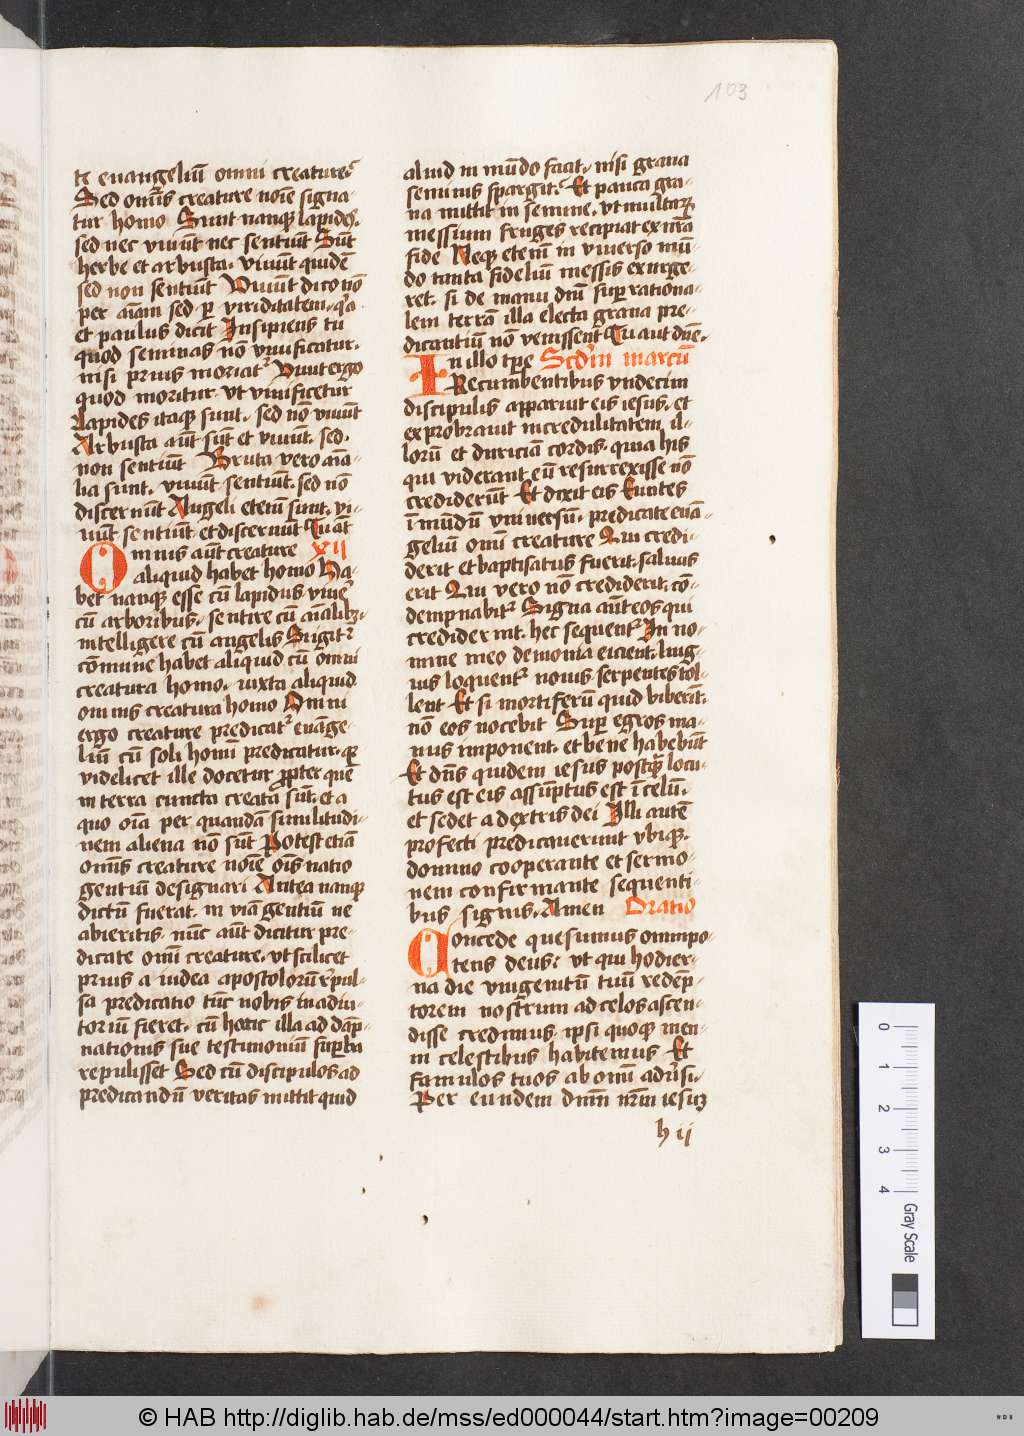 103
te euangeliū omni creature?
Sed omīs creature noīe signa-
tur homo Sunt nanqꝫ lapides.
sed nec viuūt nec sentiūt Sūt
herbe et arbusta. viuūt quidē
sed non sentiūt Viuūt dico nō
per aīam sed ꝑ viriditatem. qꝛa
et paulus dicit Insipiens tu
quod seminas nō viuificatur.
nisi prius moriatᷣ Viuit ergo
quod moritur. vt viuificetur
Lapides itaqꝫ sunt. sed nō viuūt
Arbusta aūt sūt et viuūt. sed.
non sentiūt Bruta vero aīa-
lia sunt. viuūt sentiūt. sed nō
discernūt Angeli etem̄ sunt. vi-
uūt sentiūt. et discernūt Quāt
Omnis aūt creature XII
aliquid habet homo Ha-
bet nanqꝫ esse cū lapidus viuē
cū arboribus. sentire cū aīalibꝫ.
intelligere cū angelis Si igitᷣ
cōmune habet aliquid cū omni
creatura homo. iuxta aliquid
omnis creatura homo Omni
ergo creature predicatᷣ euāge-
liū cū soli homī predicatur. qꝛ
videlicet ille docetur ꝓpter quē
in terra cuncta creata sūt. et a
quo oīa per quandā similitudi-
nem aliena nō sūt Potest etiā
omīs creature noīe oīs natio
gentiū designari Antea nanqꝫ
dictū fuerat. in viā gentiū ne
abieritis. nūc aūt dicitur pre-
dicate omī creature. vt scilicet
prius a iudea apostolorū rꝑpul-
sa predicatio tūc nobis in adiu-
toriū fieret. cū hanc illa ad dāp-
nationis sue testimoniū suꝑba
repulisset Sed cū discipulos ad
predicandū veritas mittit quid
aliud in mūdo facit. nisi grana
seminis spargit? Et pauca gra-
na mittit in semine. vt multaꝝ
messium fruges recipiat ex nrā
fide Neqꝫ etem̄ in viuerso mū-
do tanta fideliū messis exurge-
ret. si de manu dnī suꝑ rationa-
lem terrā illa electa grana pre-
dicantiū nō venissent Tu aut dnē.
In illo tꝑe Scdm marcū
Recumbentibus vndecim
discipulis apparuit eis iesus. et
exprobrauit incredulitatem il-
lorū et duriciā cordis. quia his
qui viderant eū resurrexisse nō
crediderūt Et dixit eis Euntes
ī mūdū vniuersū. predicate euā-
geliū omī creature Qui credi-
derit et baptisatus fuerit. saluus
erit Qui vero nō crediderit. cō-
dempnabitᷣ Signa aūt eos qui
crediderint. hec sequentᷣ In no-
mine meo demonia eicient. ling-
uis loquentᷣ nouis. serpentes tol-
lent Et si mortiferū quid biberīt.
nō eos nocebit Suꝑ egros ma-
nus imponent. et bene habebūt
Et dn̄s quidem iesus postqꝫ locu-
tus est eis assūptus est ī celū.
et sedet a dextris dei Illi autē
profecti predicauerunt vbiqꝫ.
domino cooperante et sermo-
nem confirmante sequenti-
bus signis. Amen Oratio
Concede quesumus omnipo-
tens deus: vt qui hodier-
na die vnigenitū tuū redēp-
torem nostrum ad celos ascen-
disse credimus. ipsi quoqꝫ men-
te in celestibus habitemus Et
famulos tuos ab omī aduersi.
Per eundem dnm̄ nrm̄ iesuꝫ
h ij
0
1
2
3
4
Gray Scale
© HAB http://diglib.hab.de/mss/ed000044/start.htm?image=00209